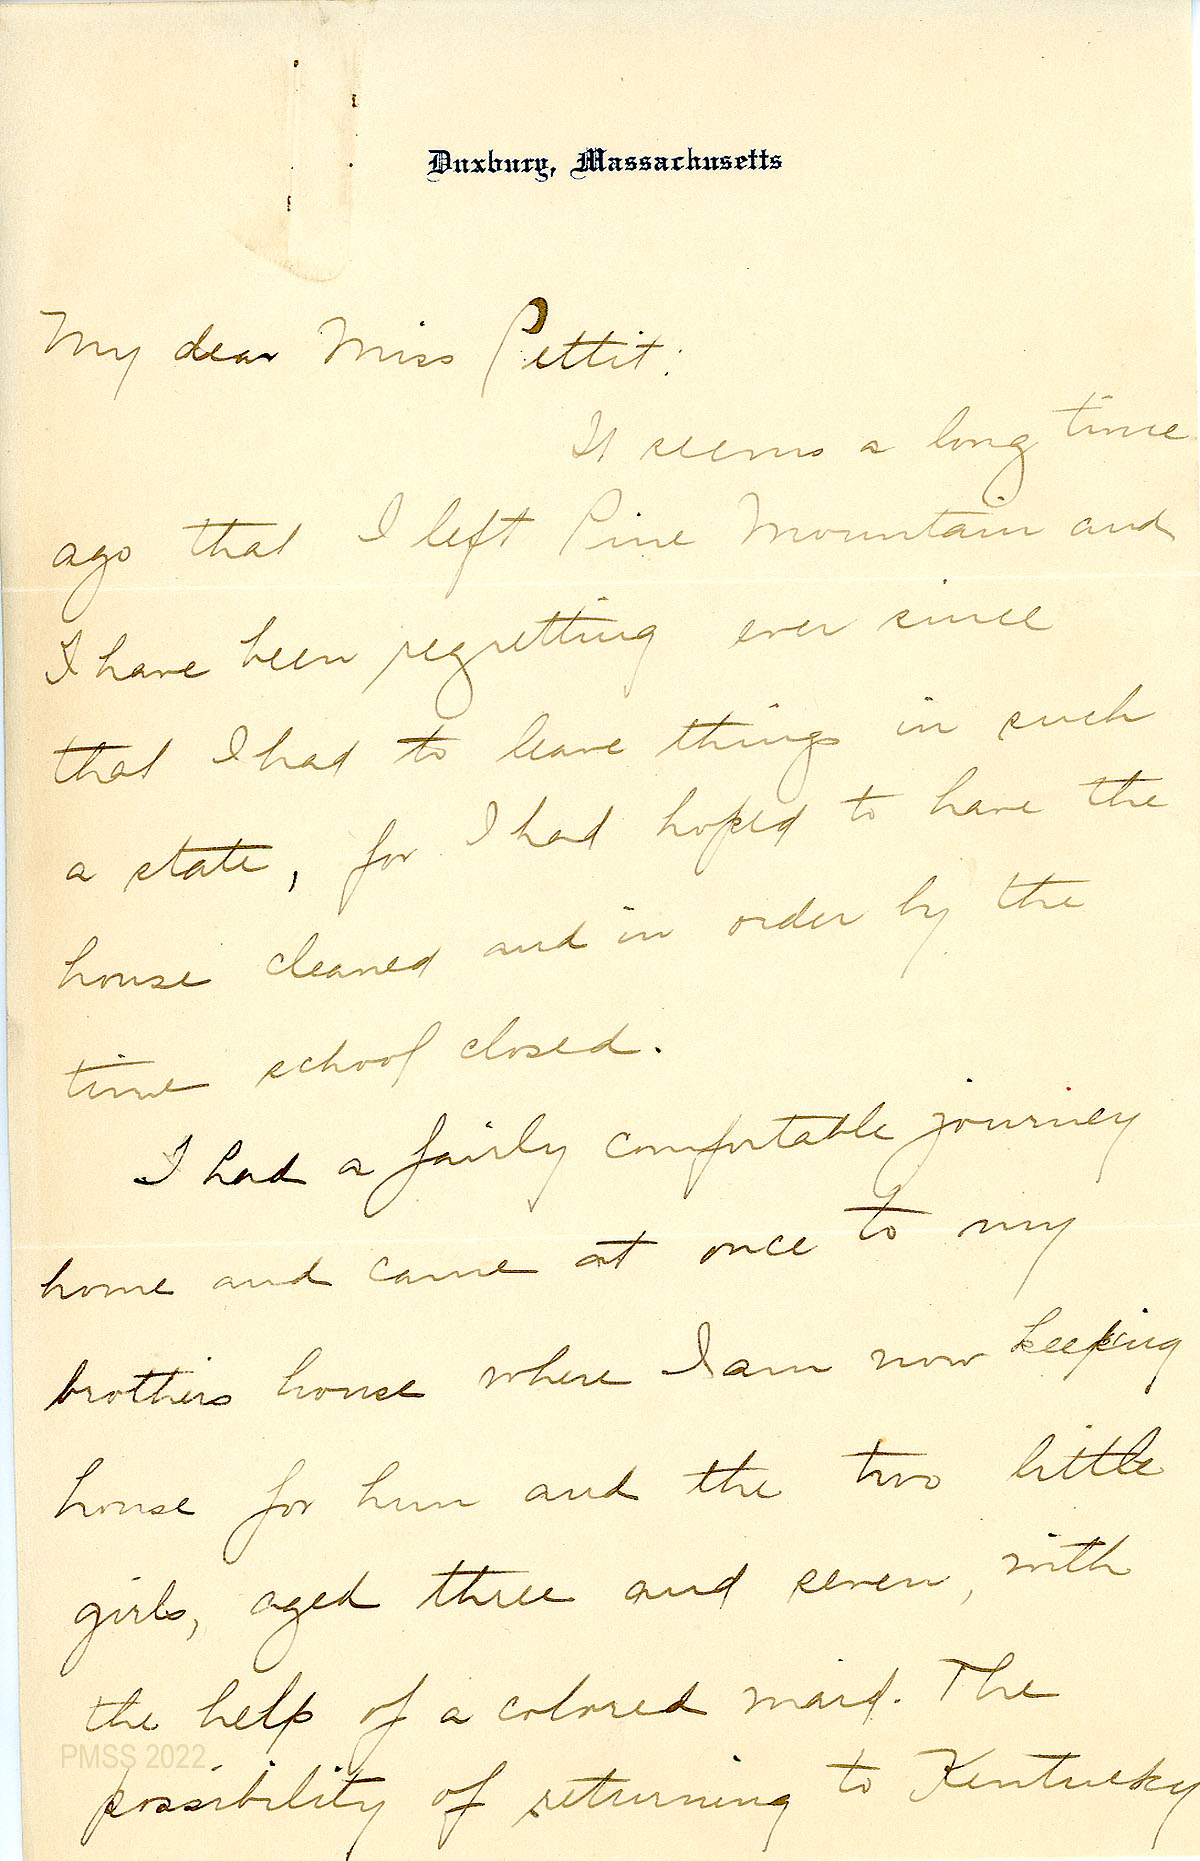 Duxbury, Massachusetts
My dear Miss Pettit:
It seems a long time
ago that I left Pine Mountain and
I have been regretting ever since
that I had to leave things in such
a state, for I had hoped to have the
house cleaned and in order by the
time school closed.
I had a fairly comfortable journey
home and came at once to my
brothers house where I am now keeping
house for him and the two little
girls, aged three and seven, with
the help of a colored maid. The
PMSS 2022
possibility of returning to Kentucky